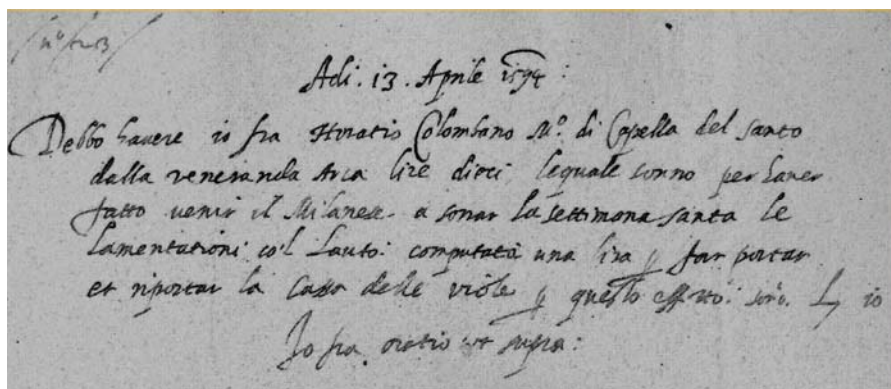 Adi. 13. Aprile 1594:
Debbo havere io fra Horatio Colombano Mº. di Capella del santo
dalla veneranda Arca lire dieci lequale sonno per haver
fatto venir il Milanese a sonar la settimana santa le
lamentationi co'l Lauto: computata una lira p far portar
et riportar la Cassa delle viole p questo effetto: sonº. L 10
Io fra oratio ut supra: